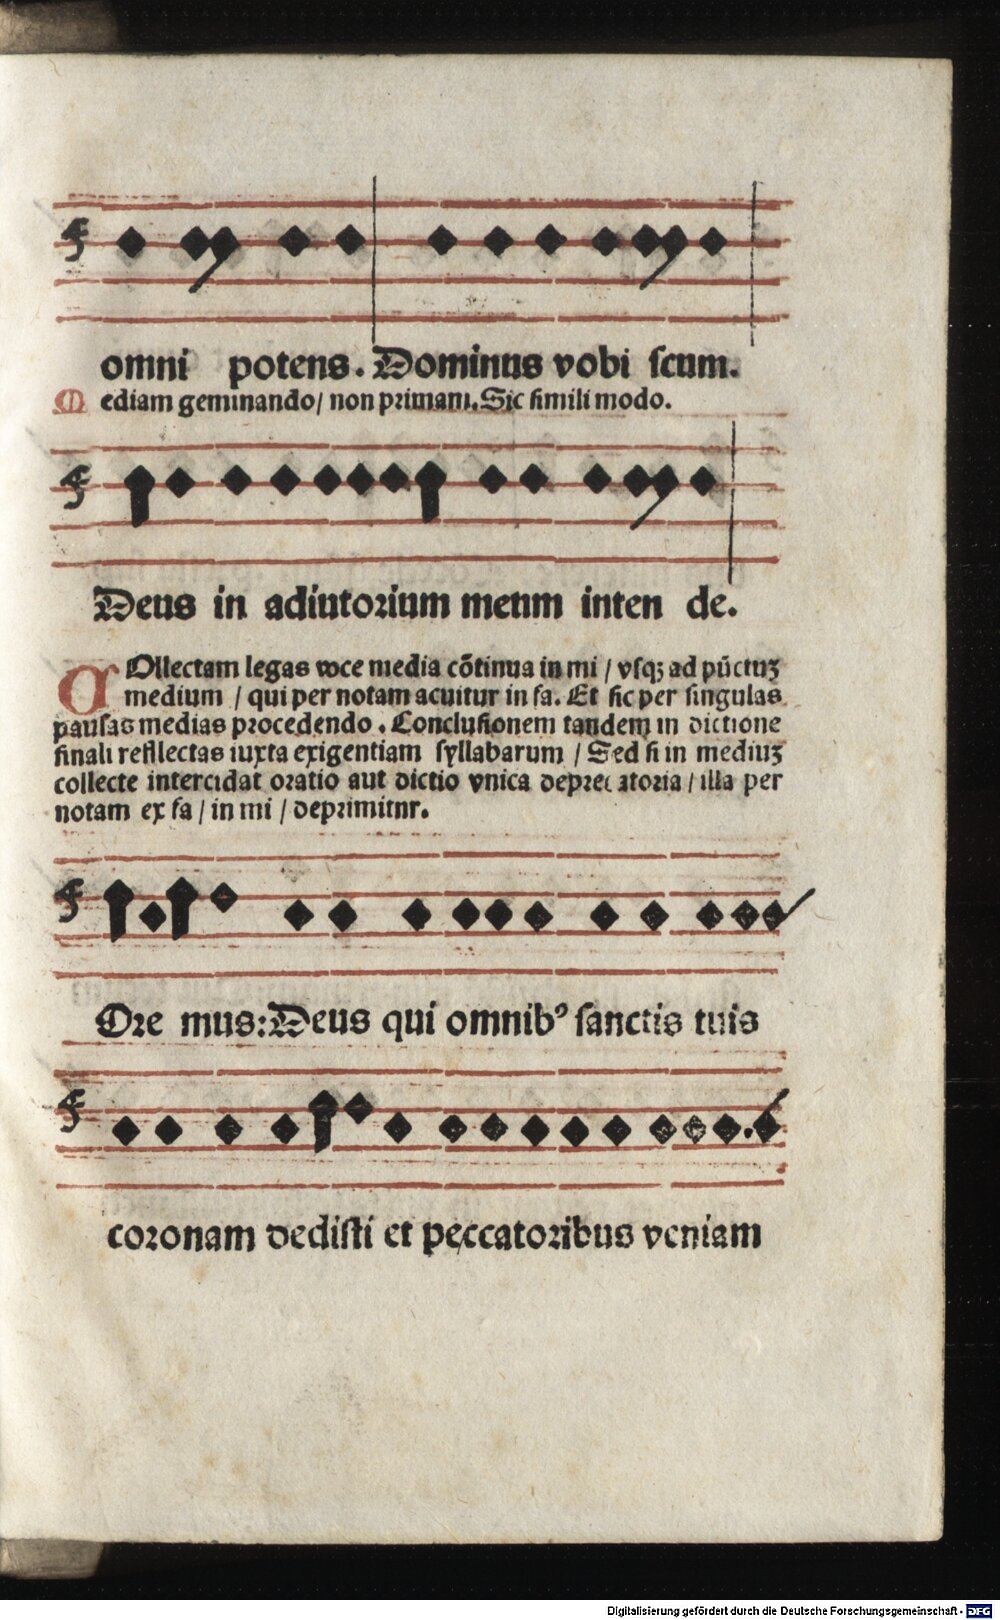 omni potens. Dominus vobi scum.
Mediam geminando/ non primam. Sic simili modo.
Deus in adiutorium meum inten de.
COllectam legas voce media cõtinua in mi / vsqꝫ ad pũctuꝫ
medium / qui per notam acuitur in fa. Et sic per singulas
pausas medias procedendo. Conclusionem tandem in dictione
finali refllectas iuxta exigentiam syllabarum / Sed si in mediuꝫ
collecte intercidat oratio aut dictio vnica deprecatoria / illa per
notam ex fa / in mi / deprimitnr.
Ore mus: Deus qui omnibꝰ sanctis tuis
coronam dedisti et peccatoribus veniam
Digitalisierung gefördert durch die Deutsche Forschungsgemeinschaft - DFG